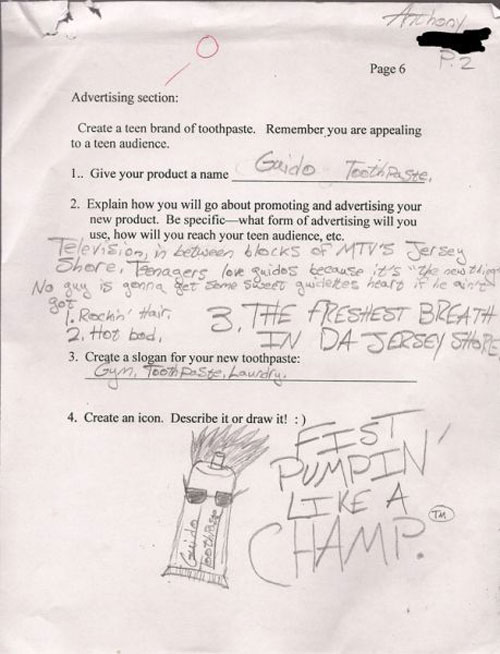 Anthony
P. 2
Page 6
Advertising section:
Create a teen brand of toothpaste. Remember you are appealing
to a teen audience.
1.. Give your product a name Guido Toothpaste.
2. Explain how you will go about promoting and advertising your
new product. Be specific—what form of advertising will you
use, how will you reach your teen audience, etc.
Television, in between blocks of MTV'S Jersey
Shore. Teenagers love guidos because it's "the new thing"
No guy is gonna get some sweet guidettes heart if he ain't
got
1. Rockin' Hair.
2. Hot bod.
3. THE FRESHEST BREATH
IN DA JERSEY SHORE
3. Create a slogan for your new toothpaste:
Gym, Toothpaste, Laundry.
4. Create an icon. Describe it or draw it! : )
Guido
Toothpaste
FIST
PUMPIN'
LIKE A
CHAMP.
TM